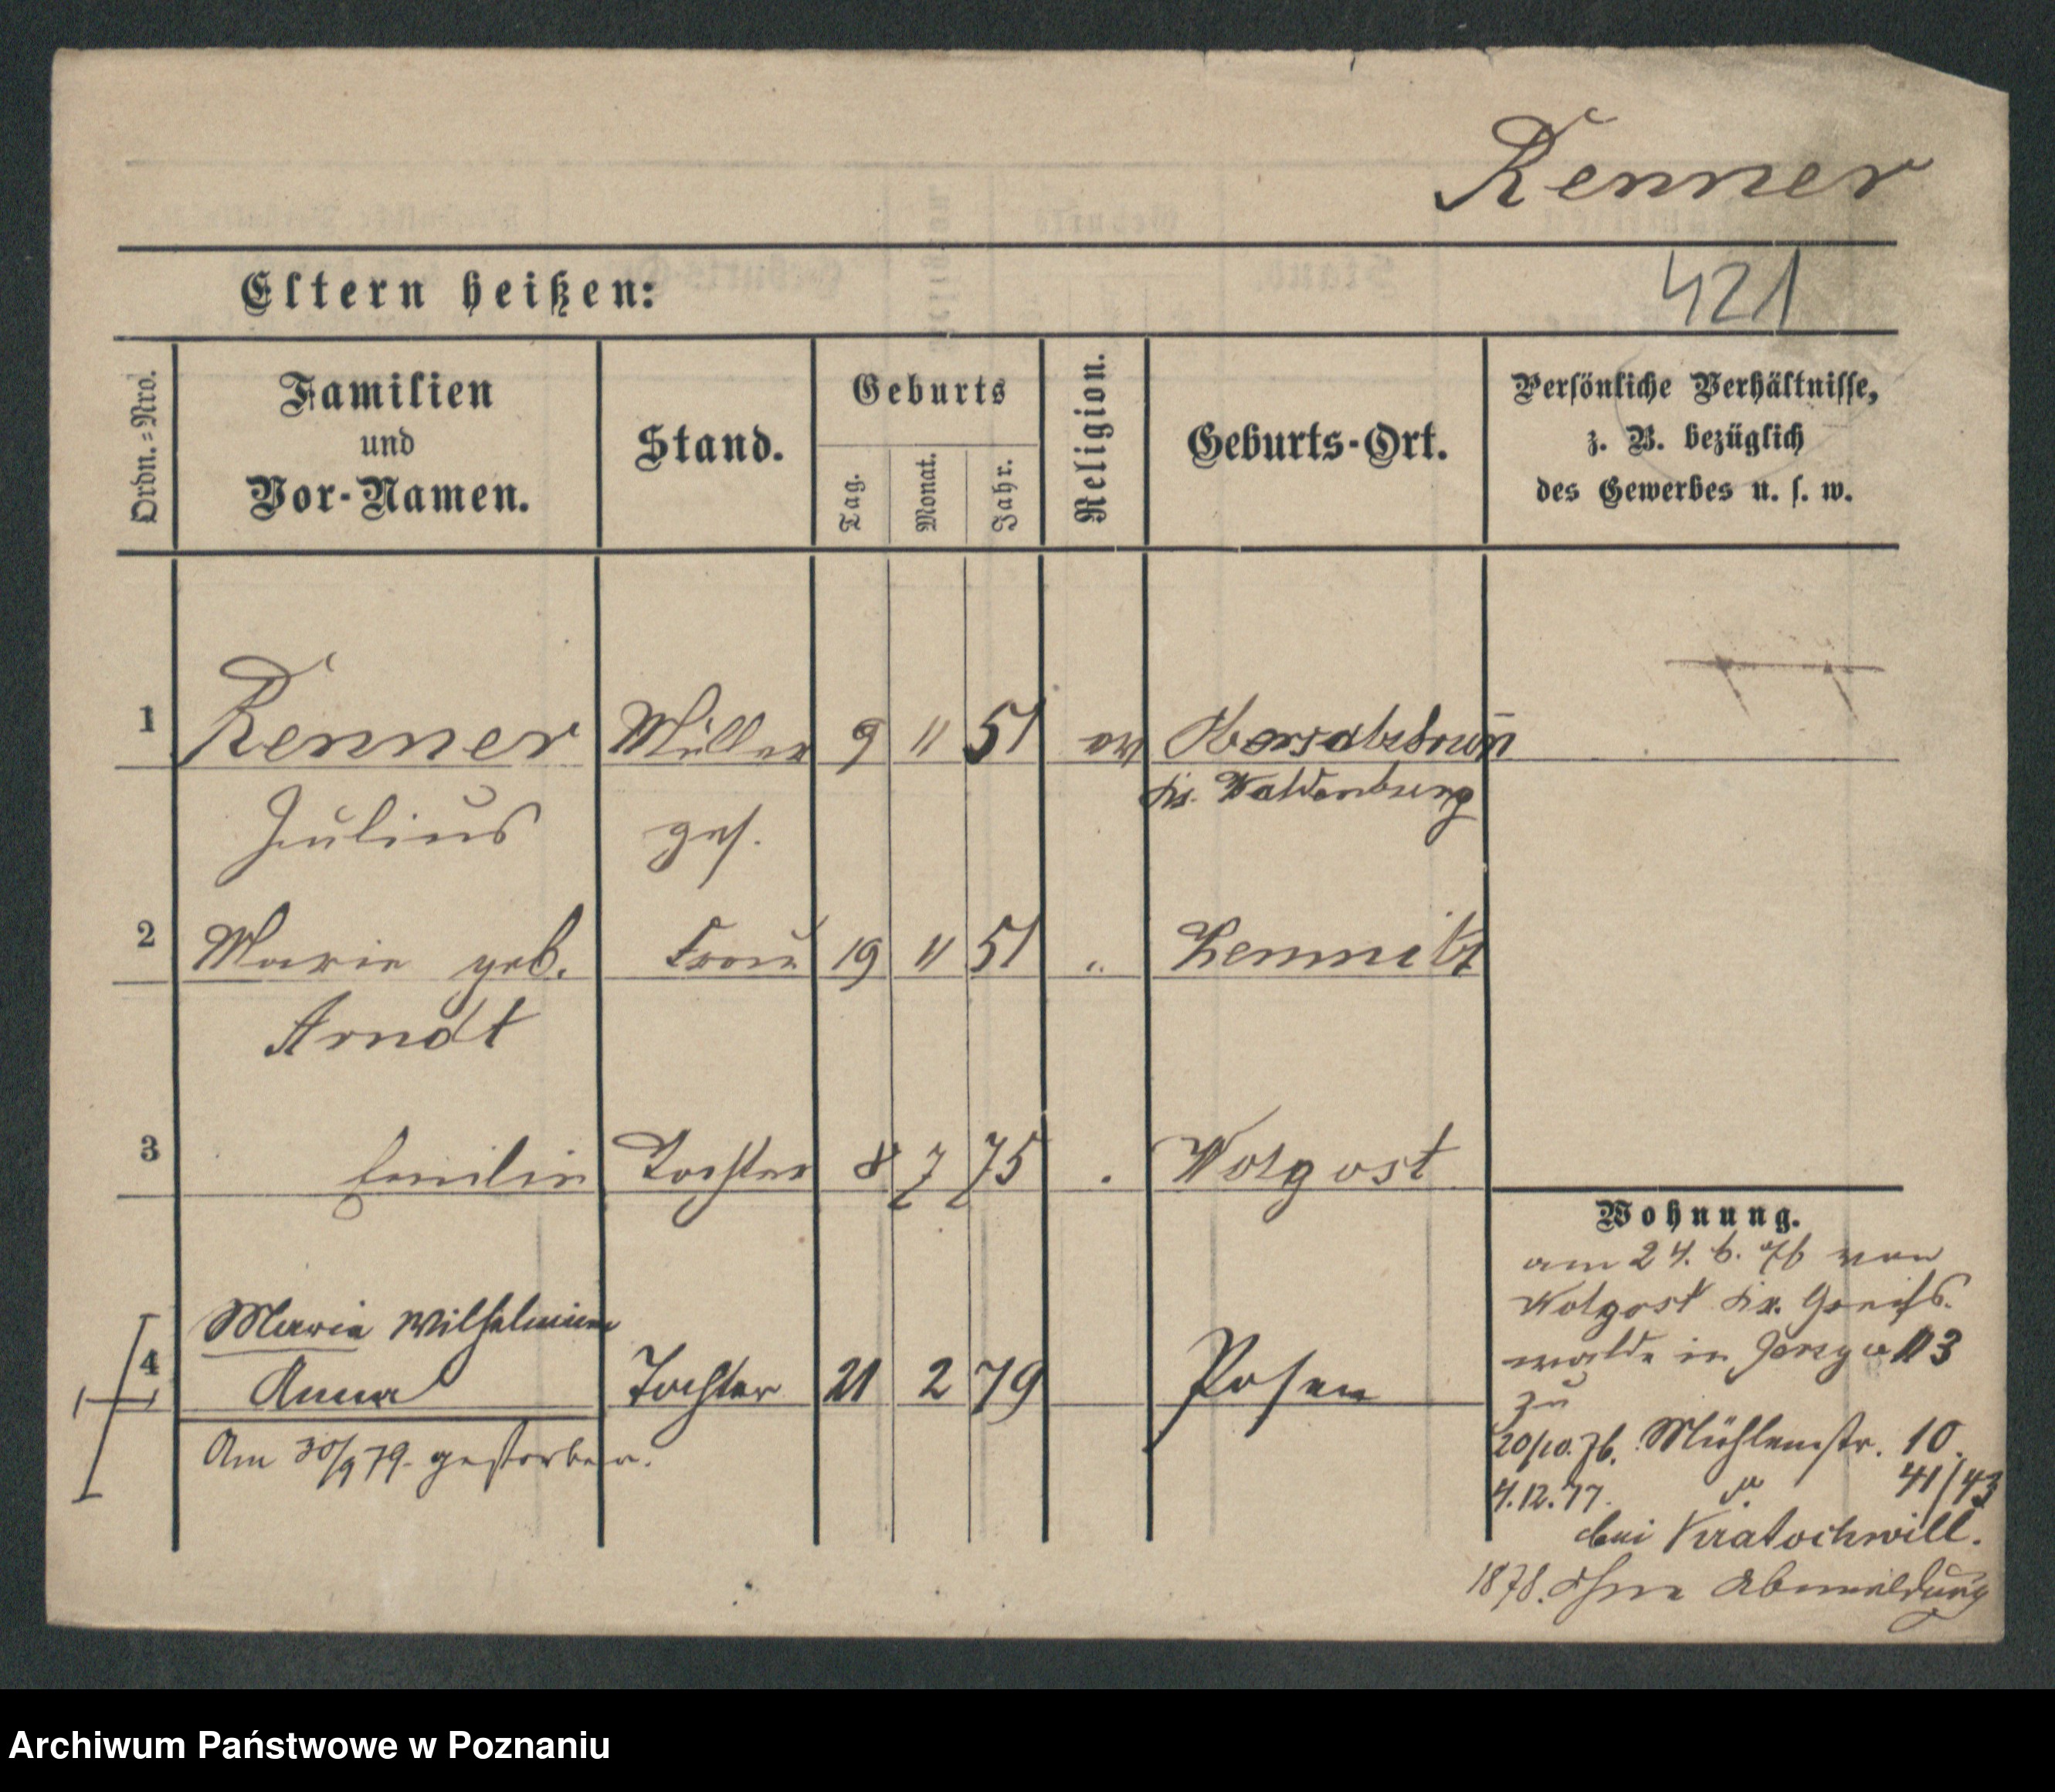 Renner
Eltern heißen:
421
Ordn.=Nro.
Familien
und
Vor-Namen.
Stand.
Geburts
Tag.
Monat.
Jahr.
Religion.
Geburts-Ort.
Persönliche Verhältnisse,
z. B. bezüglich
des Gewerbes u. s. w.
1 Renner Müller 9 11 51 ev Obersalzbrun̄
Kr. Waldenburg
Julius ges.
2 Marie geb. Frau 19 11 51 " Zemnitz
Arndt
3 Emilie Tochter 8 7 75 . Wolgast
Wohnung.
am 24. 6. 76 von
Wolgast Kr. Greifs.
walde in 113
zu
4 Maria Wilhelmine
Anna Tochter 21 2 79 Posen
Am 30/9 79. gestorben.
20/10. 76. Mühlenstr. 10.
4.12.77. 41/43
bei Kratochwill.
1878. Ohne Abmeldung
Archiwum Państwowe w Poznaniu